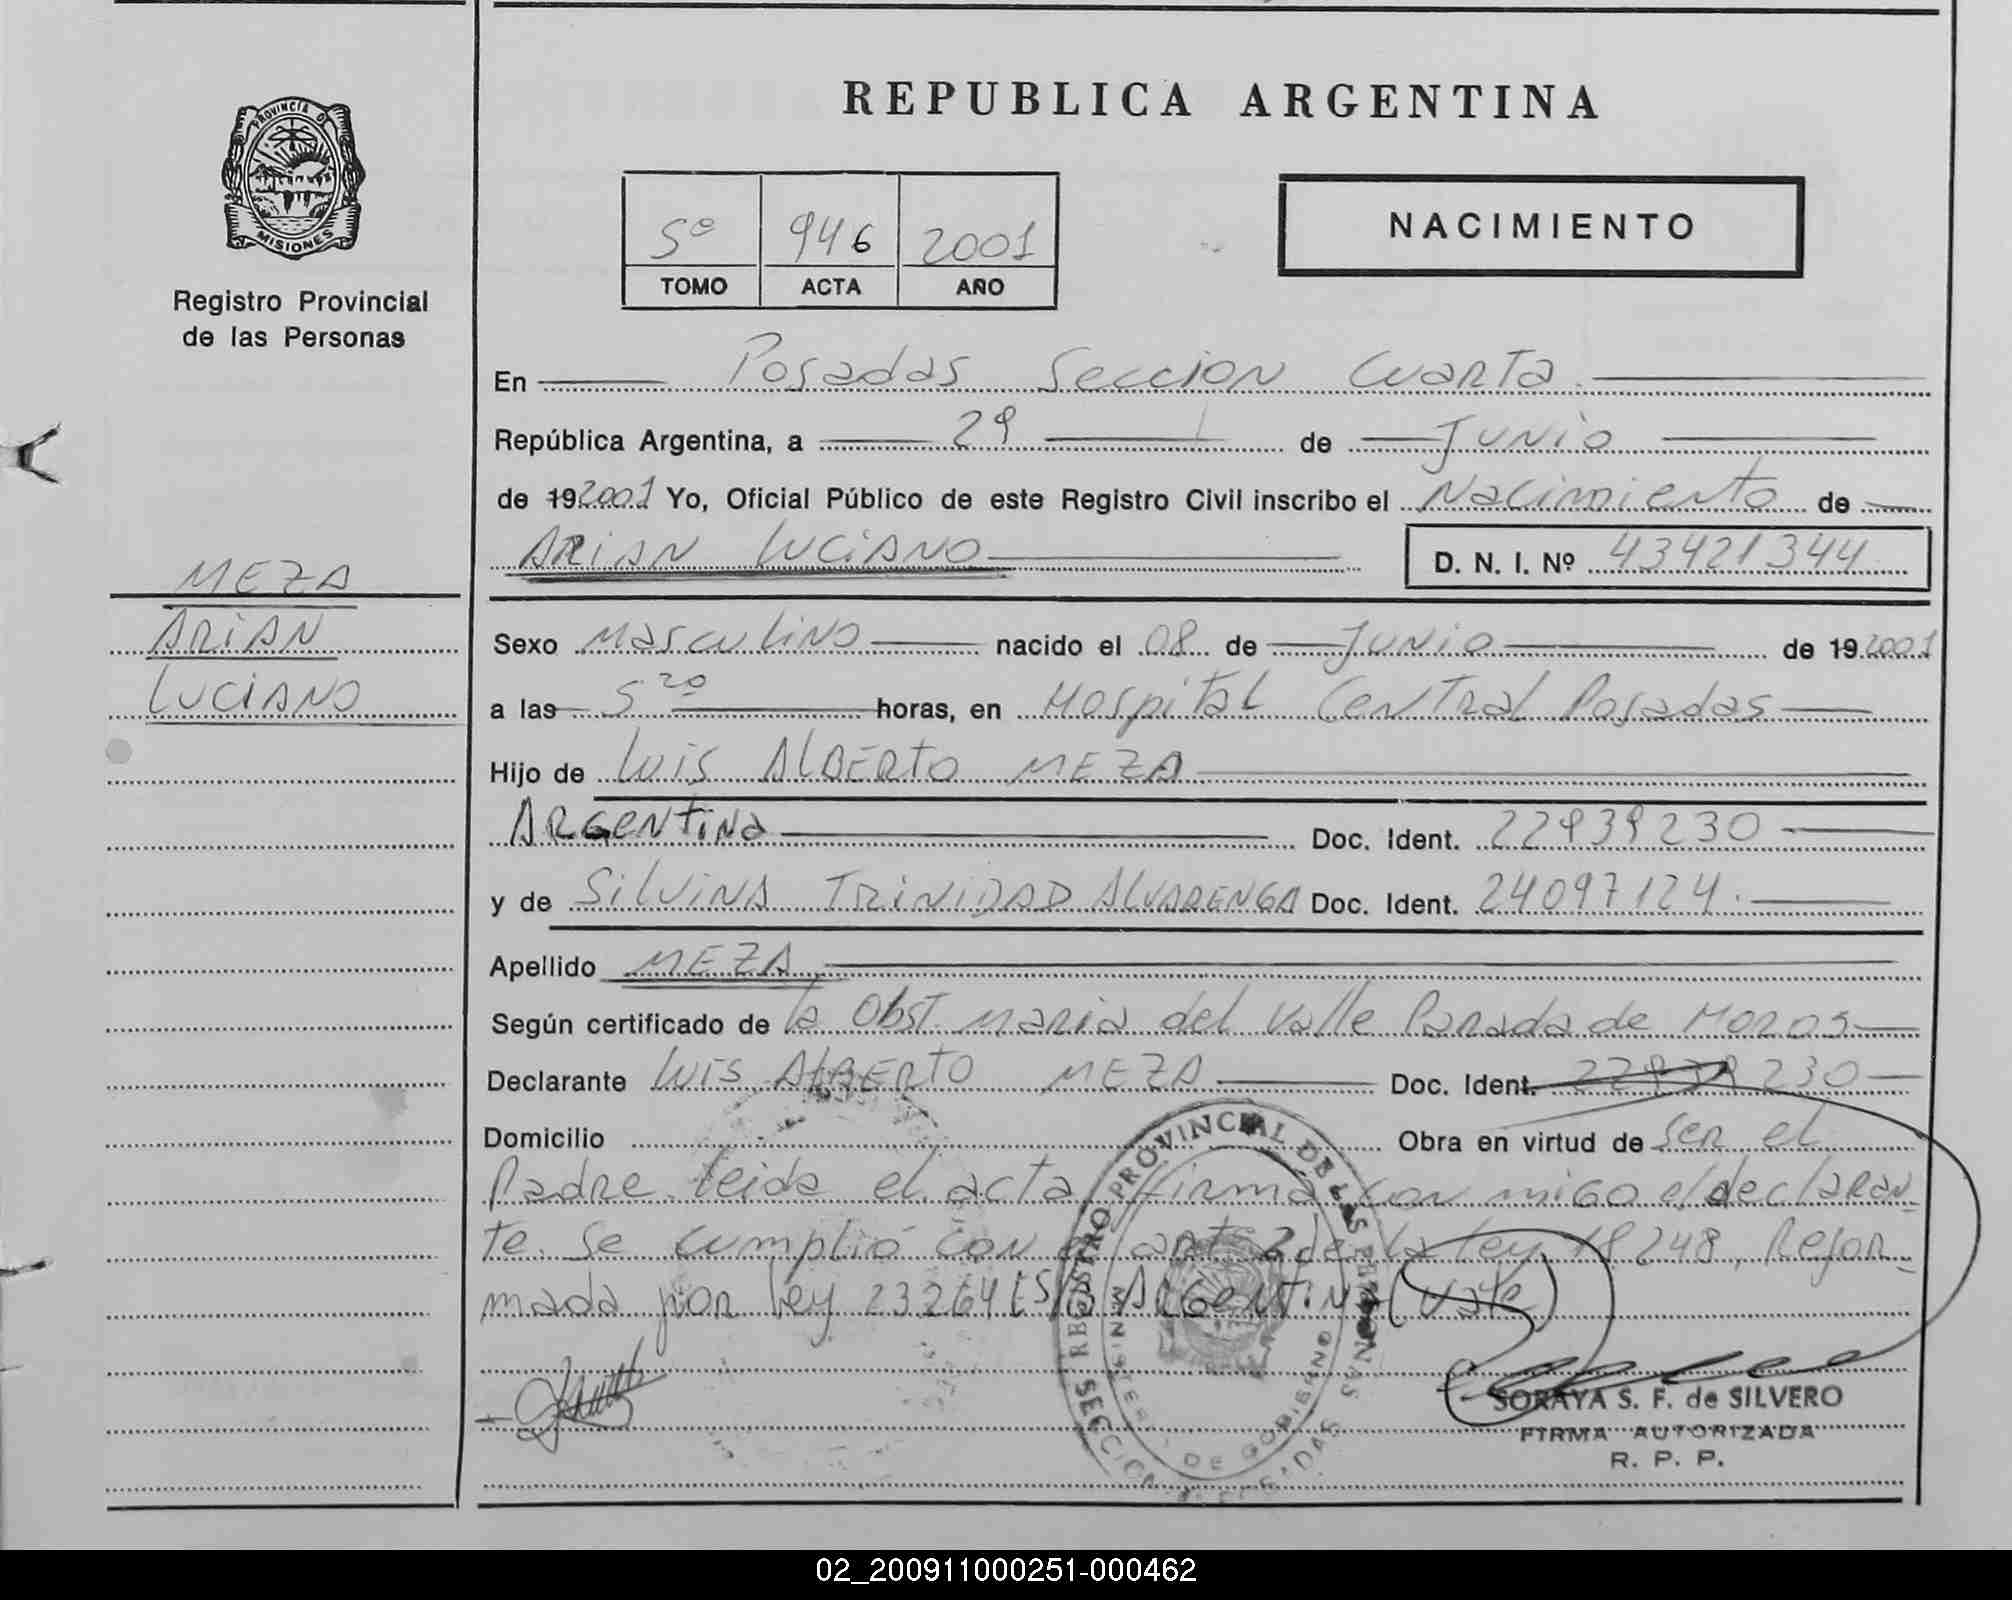 PROVINCIA D
MISIONES
Registro Provincial
de las Personas
MEZA
ARIAN
LUCIANO
REPUBLICA ARGENTINA
5º 946 2001
TOMO ACTA AÑO
NACIMIENTO
En Posadas Seccion Cuarta
República Argentina, a 29 de Junio
de 192001 Yo, Oficial Público de este Registro Civil inscribo el Nacimiento de
ARIAN LUCIANO D. N. I. Nº 43421344
Sexo Masculino nacido el 08 de Junio de 19 2001
a las 5 20 horas, en Hospital Central Posadas
Hijo de Luis ALBERTO MEZA
ARGentina Doc. Ident. 22939230
y de SILVINA TRINIDAD ALVARENGA Doc. Ident. 24097124.
Apellido MEZA
Según certificado de la Obst. Maria del Valle Parada de Moras
Declarante Luis ALBERTO MEZA Doc. Ident. 22939230
Domicilio Obra en virtud de Ser el
Padre. leida el acta, firma con migo el declaran
te. Se cumplió con el art 2 de la ley 18248, Refor
mada por ley 23264 ES/S ARGENTINA (Vale)
REGISTRO PROVINCIAL DE LAS PERSONAS
MINISTERIO DE GOBIERNO
SECCION POSADAS
SORAYA S. F. de SILVERO
FIRMA AUTORIZADA
R. P. P.
02_200911000251-000462